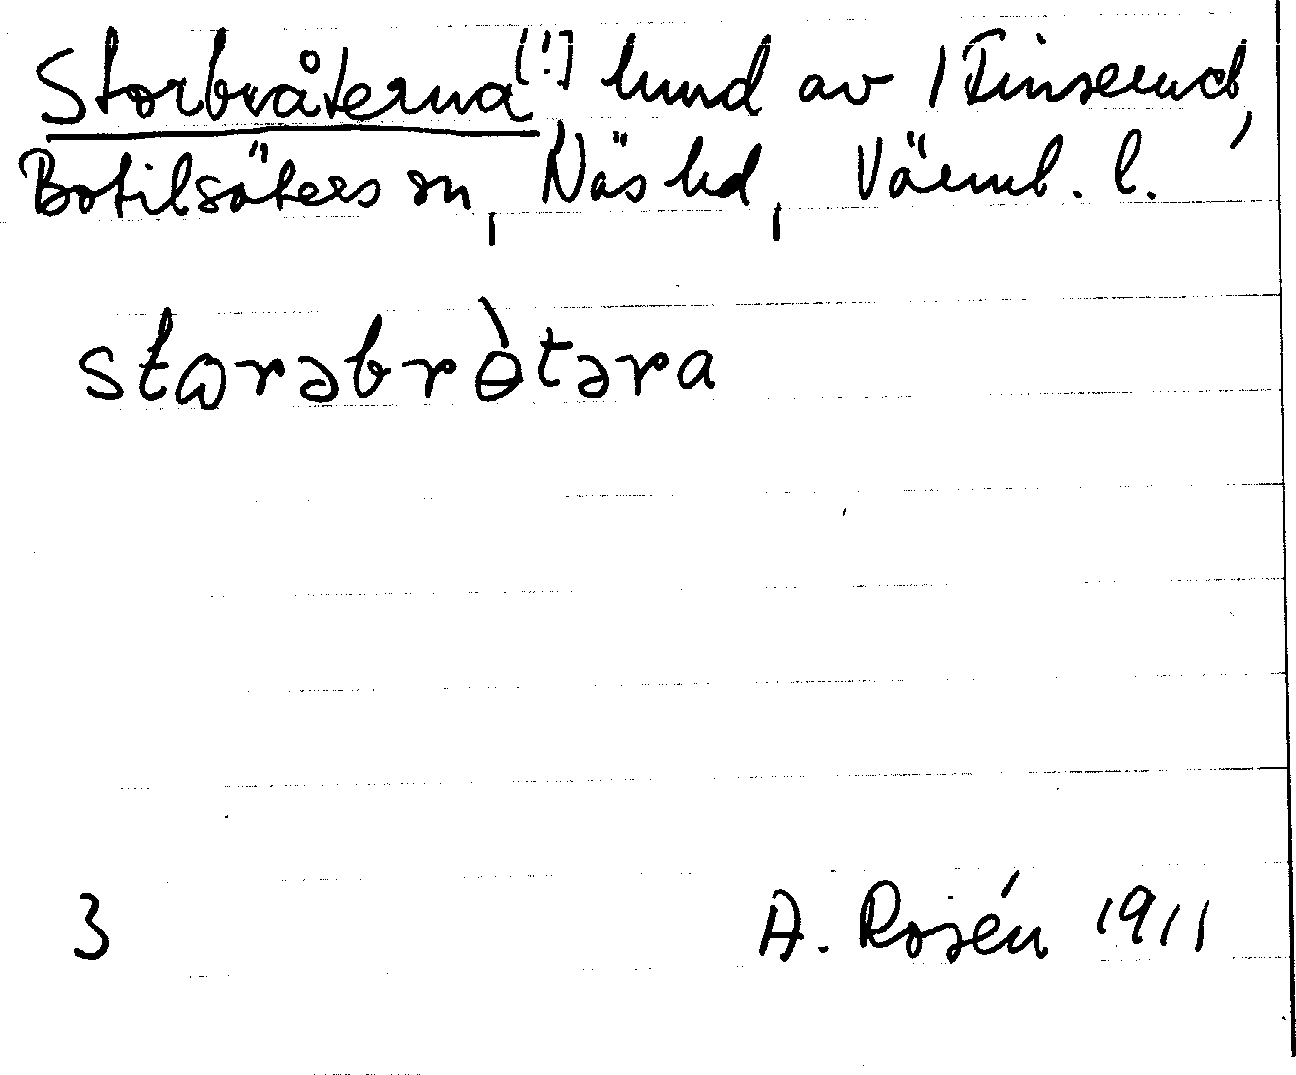 Storbråterna [!] lund av 1 Finserud,
Botilsäters sn, Näs hd, Värml. l.
storəbrɵ̀təra
3 A. Rosén 1911